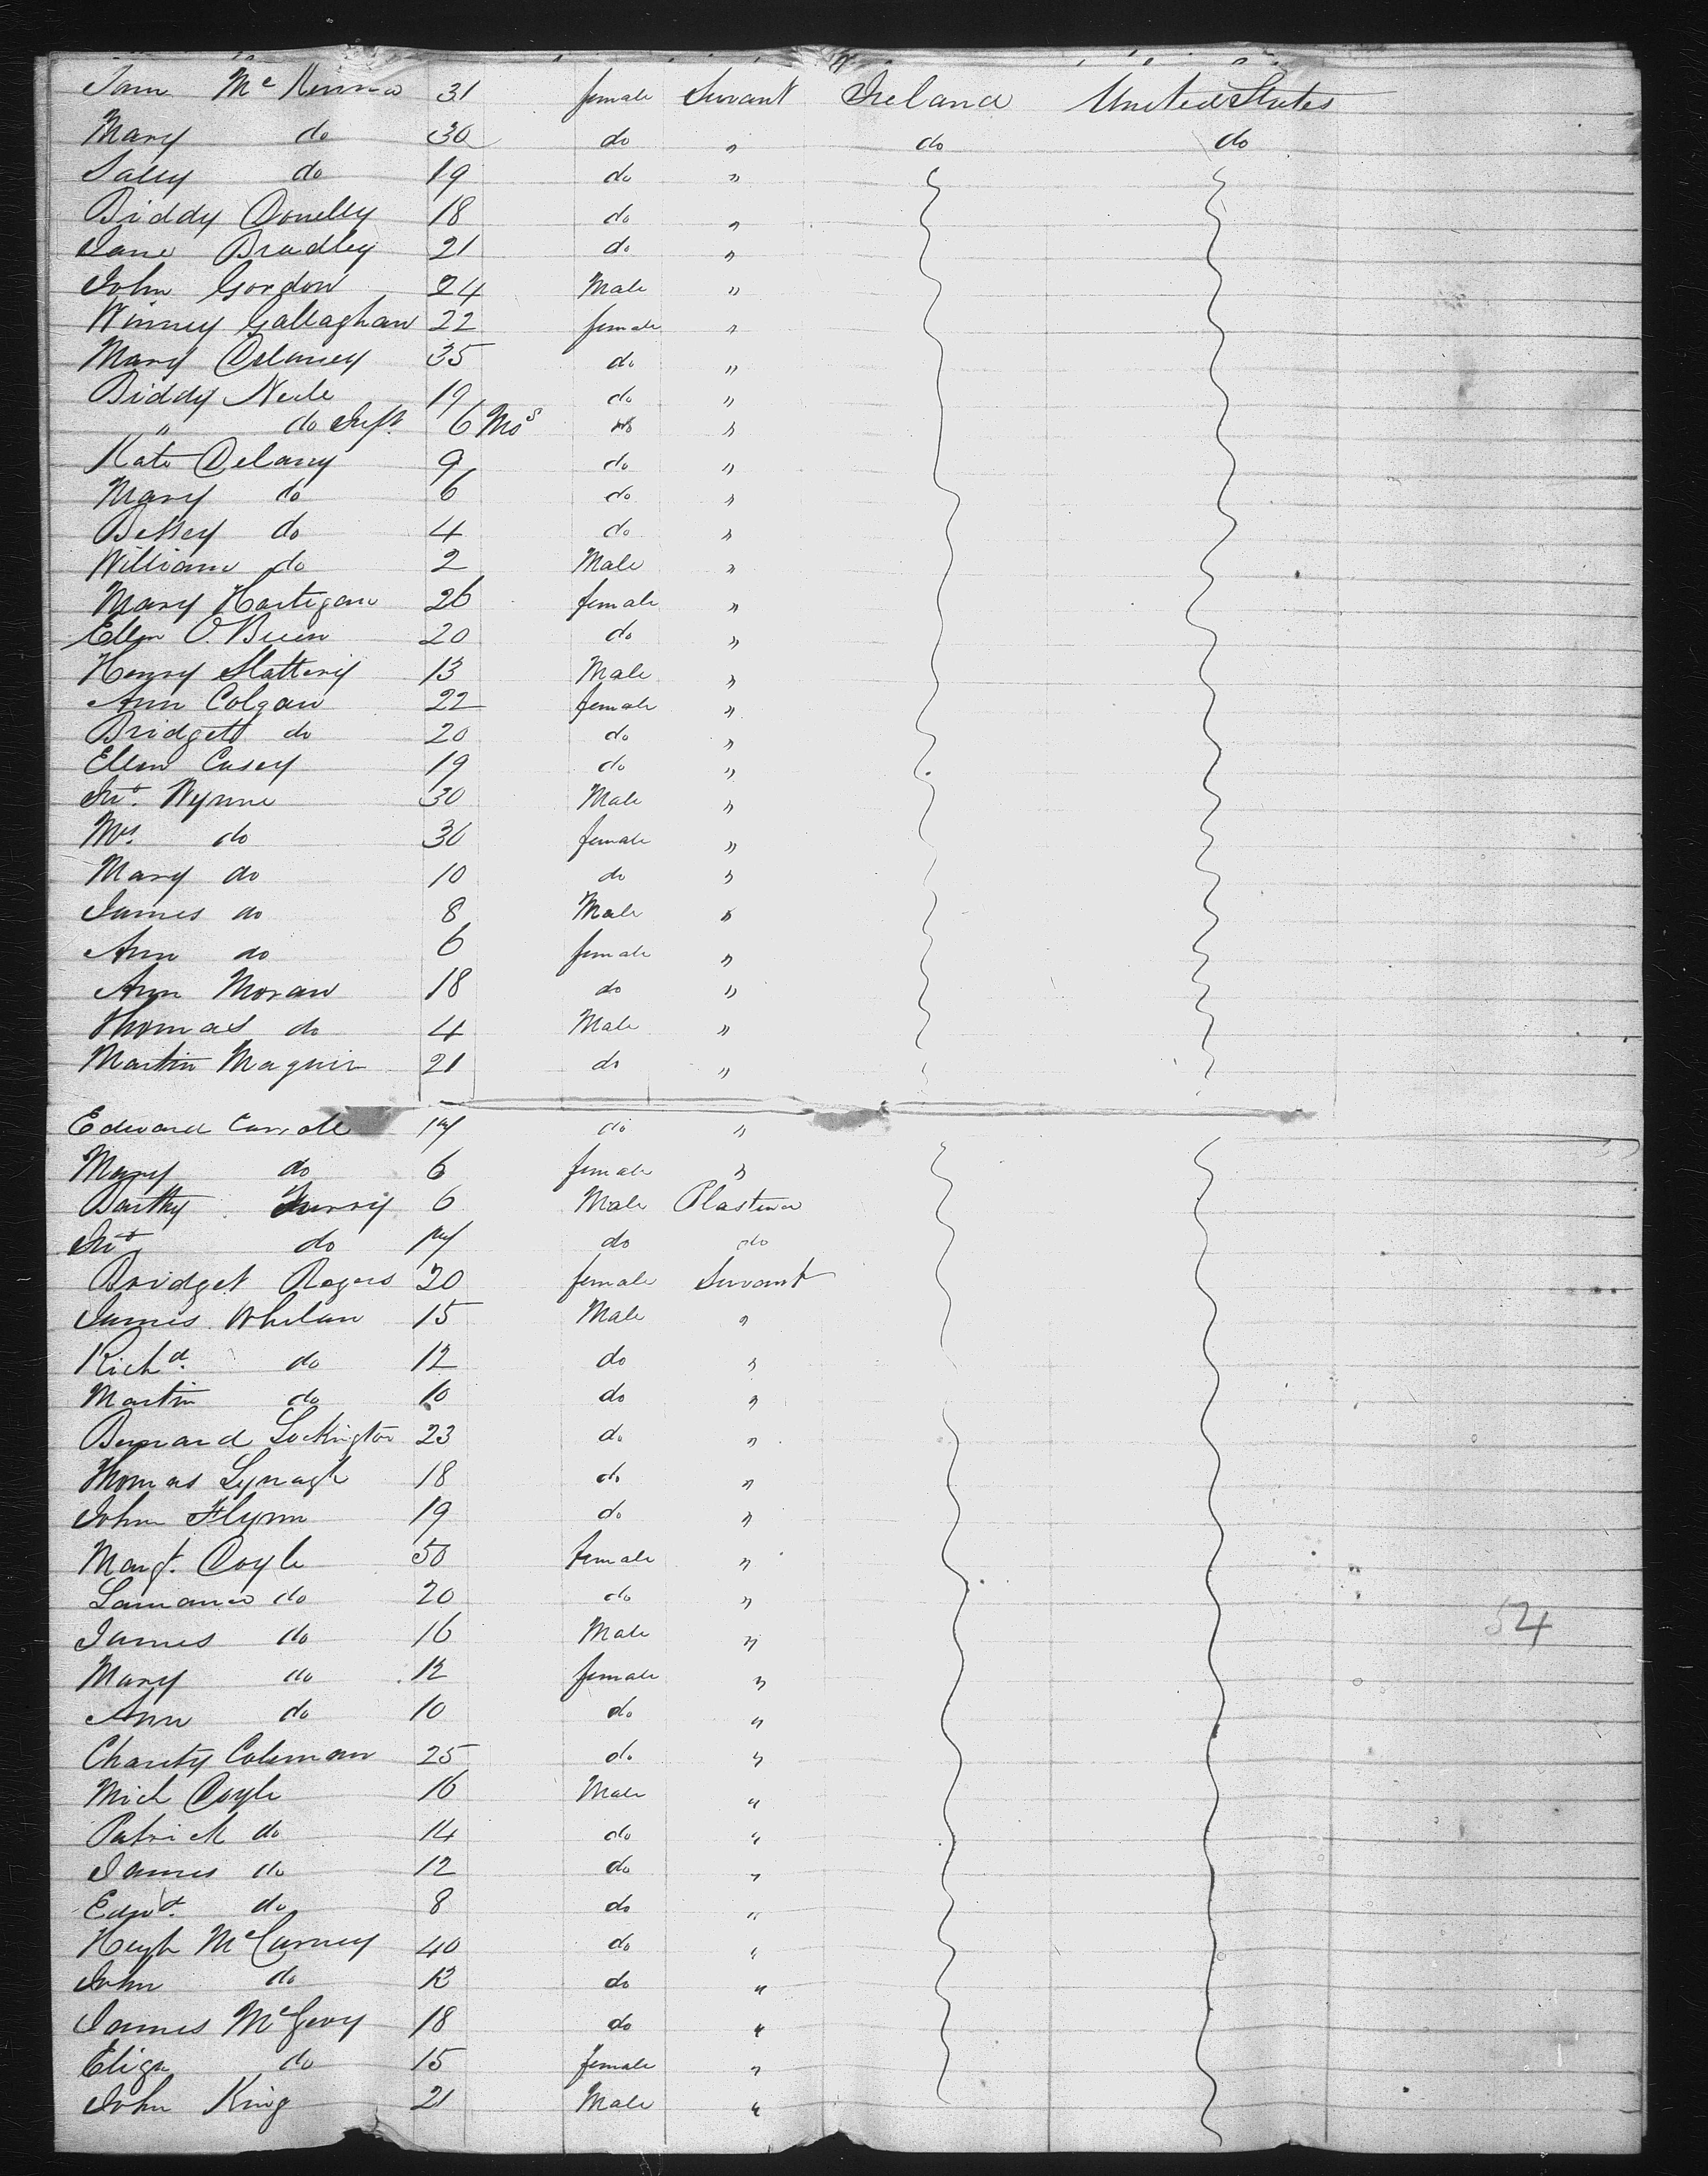 Jane McKenna 31 female Servant Ireland United States
Mary do 30 do " do do
Sally do 19 do "
Biddy Donelly 18 do "
Jane Bradley 21 do "
John Gordon 24 Male "
Winney Gallaghan 22 female "
Mary Delaney 35 do "
Biddy Neile 19 do "
" do Inft 6 Mos do "
Kate Delany 9 do "
Mary do 6 do "
Betsey do 4 do "
William do 2 Male "
Mary Hartigan 26 female "
Ellen O.Brien 20 do "
Henry Slattery 13 Male "
Ann Colgan 22 female "
Bridgett do 20 do "
Ellen Casey 19 do "
Wynne 30 Male "
Mrs. do 30 female "
Mary do 10 do "
James do 8 Male "
Ann do 6 female "
Ann Moran 18 do "
Thomas do 4 Male "
Martin Maguir 21 do "
Edward Carroll do "
Mary do 6 female "
Barthy 6 Male Plasterer
do do do
Bridget Rogers 20 female Servant
James Whelan 15 Male "
Richd. do 12 do "
Martin do 10 do "
Bernard Lockington 23 do "
Thomas Lynagh 18 do "
John Flynn 19 do "
Margt. Doyle 50 female "
do 20 do "
James do 16 Male "
Mary do 12 female "
Ann do 10 do "
54
Charity Coleman 25 do "
Mich Doyle 16 Male "
Patrick do 14 do "
James do 12 do "
Edwd. do 8 do "
Hugh McCurney 40 do "
John do 12 do "
James McGevy 18 do "
Eliza do 15 female "
John King 21 Male "